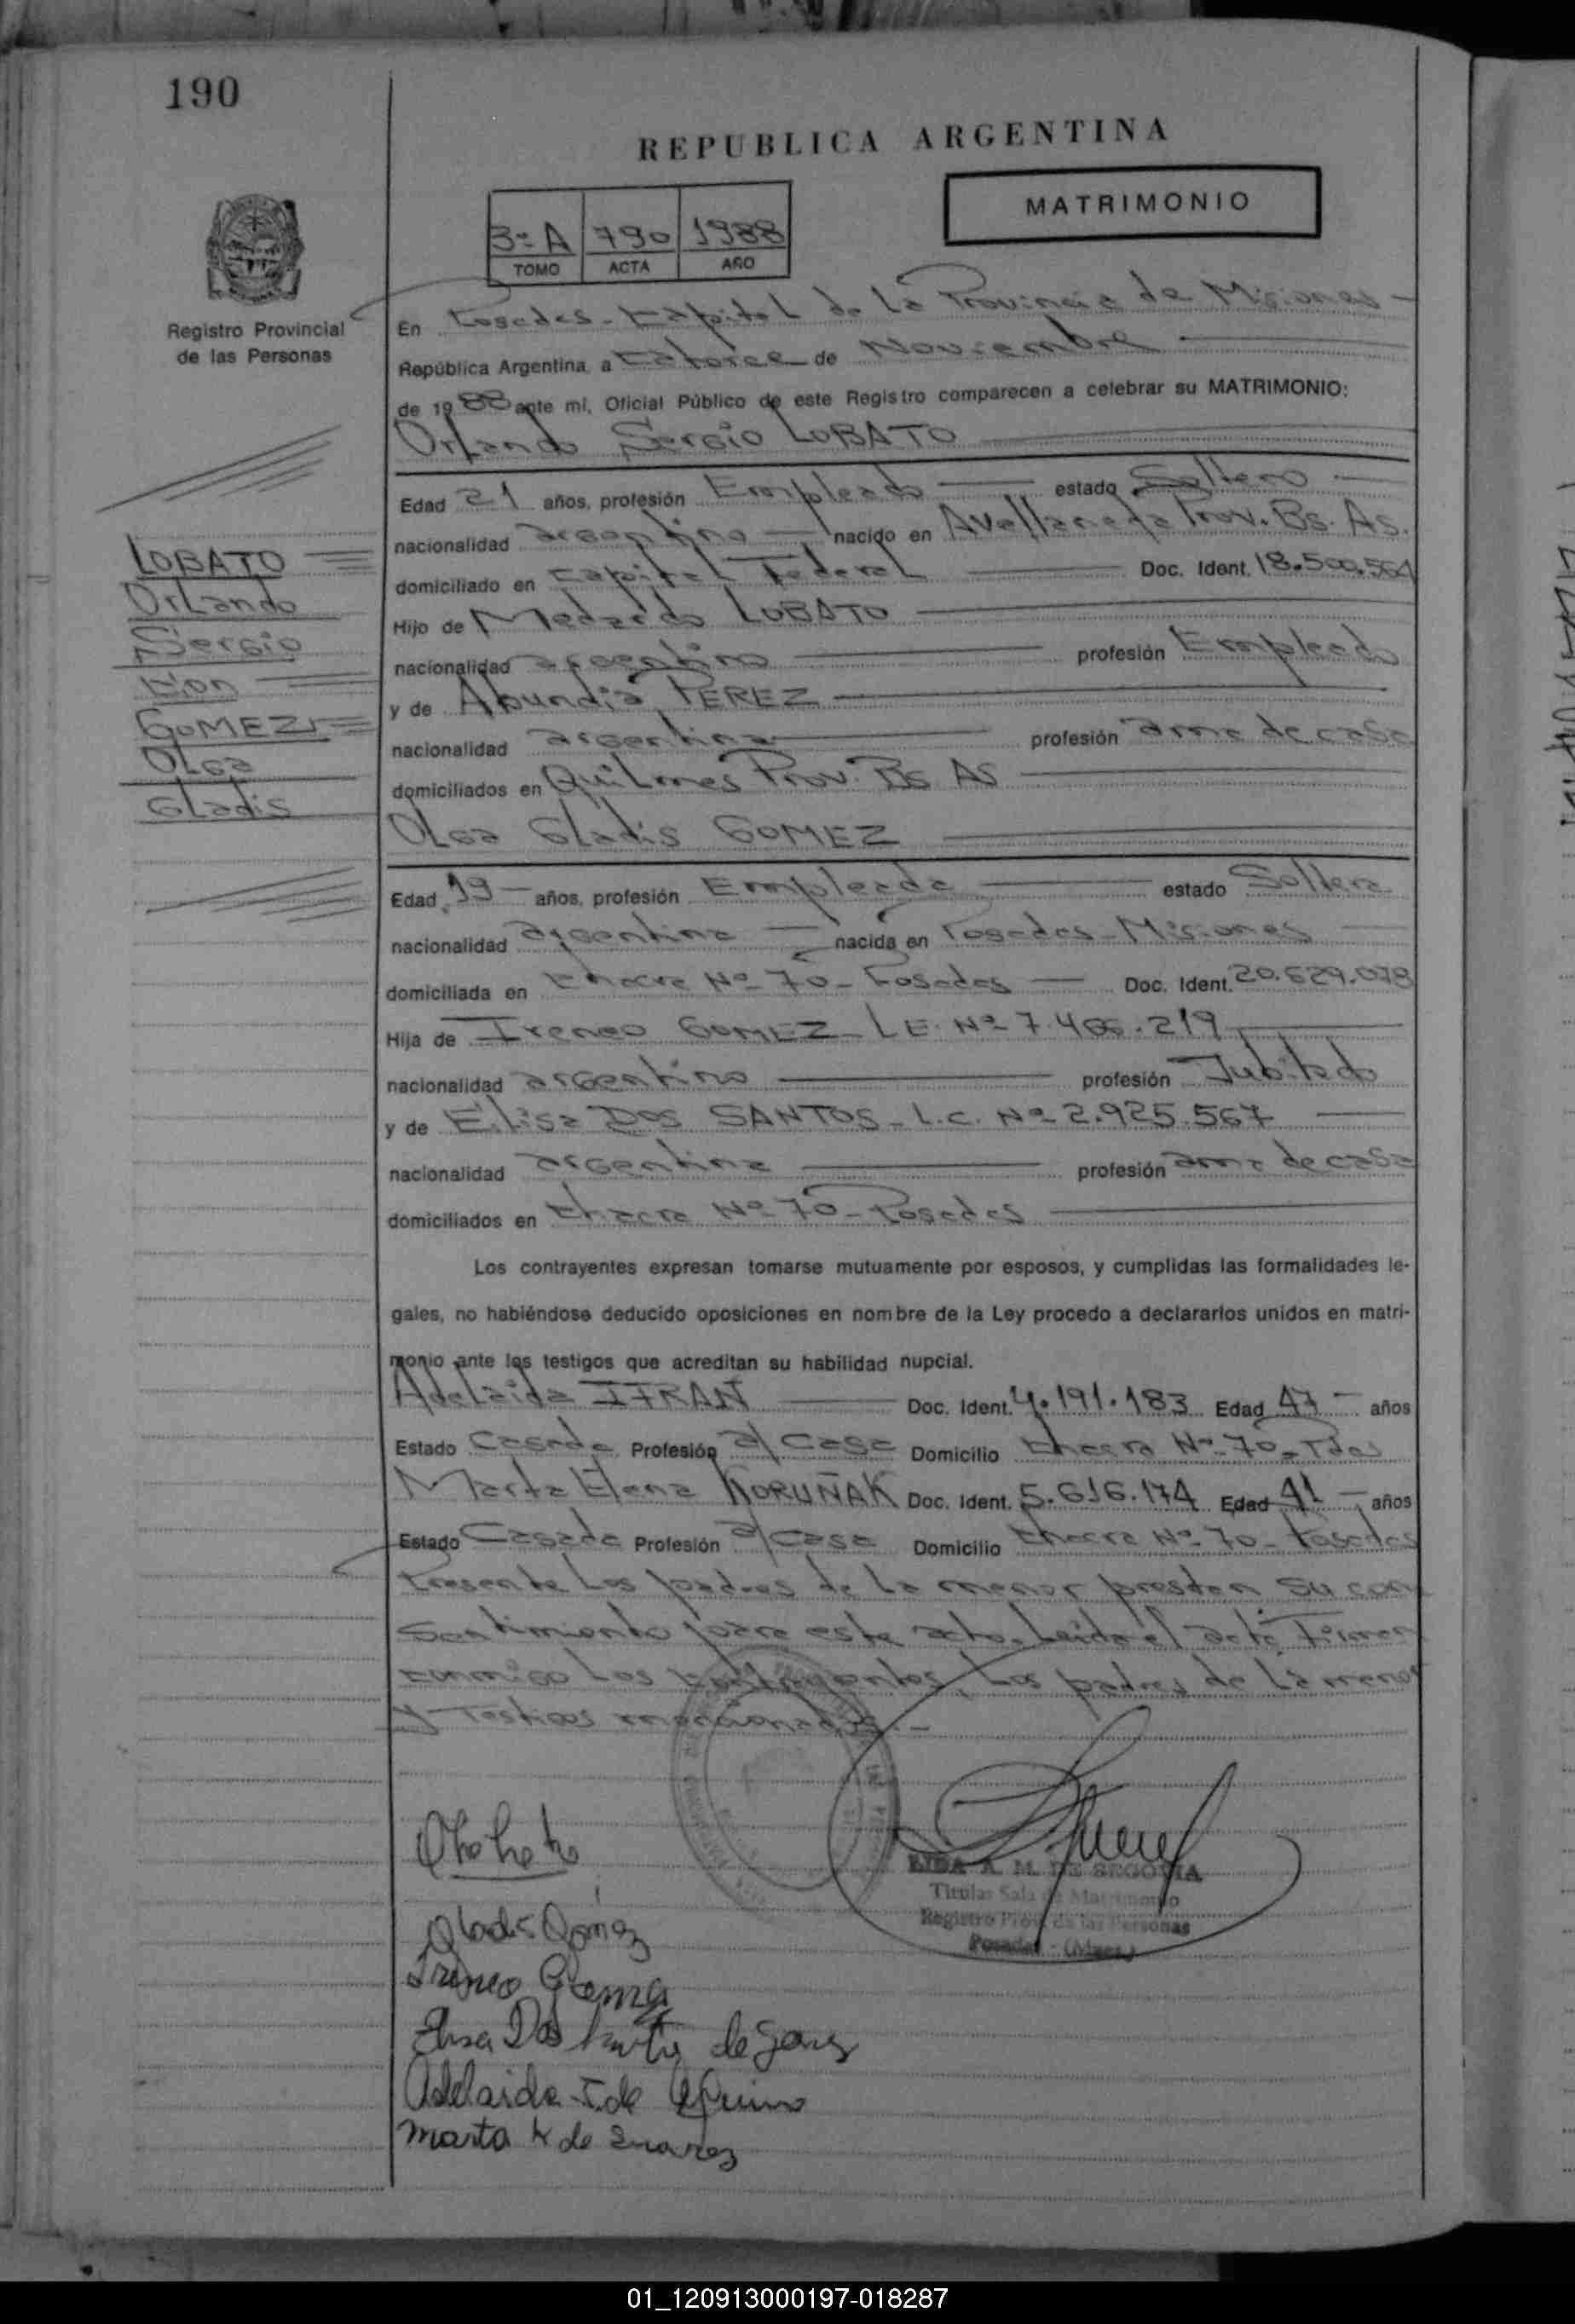 190
REPUBLICA ARGENTINA
MATRIMONIO
3º A 790 1988
TOMO ACTA AÑO
Registro Provincial
de las Personas
En Posadas - Capital de la Provincia de Misiones -
República Argentina, a Catorce de Noviembre
de 1988 ante mí, Oficial Público de este Registro comparecen a celebrar su MATRIMONIO:
Orlando Sergio LOBATO
Edad 21 años, profesión Empleado estado Soltero
nacionalidad argentino nacido en Avellaneda Prov. Bs. As.
domiciliado en Capital Federal Doc. Ident. 18.500.564
Hijo de Medardo LOBATO
nacionalidad argentino profesión Empleado
y de Abundia PEREZ
nacionalidad argentina profesión ama de casa
domiciliados en Quilmes Prov. Bs As
Olga Gladis GOMEZ
LOBATO
Orlando
Sergio
con
GOMEZ
Olga
Gladis
Edad 19 - años, profesión Empleada estado Soltera
nacionalidad argentina nacida en Posadas - Misiones
domiciliada en Chacra Nº 70 - Posadas Doc. Ident. 20.629.078
Hija de Ireneo GOMEZ - L.E. Nº 7.466.219
nacionalidad argentino profesión Jubilado
y de Elisa DOS SANTOS - L.C. Nº 2.925.567
nacionalidad argentina profesión ama de casa
domiciliados en Chacra Nº 70 - Posadas
Los contrayentes expresan tomarse mutuamente por esposos, y cumplidas las formalidades le-
gales, no habiéndose deducido oposiciones en nombre de la Ley procedo a declararlos unidos en matri-
monio ante los testigos que acreditan su habilidad nupcial.
Adelaida IFRAN Doc. Ident. 4.191.183 Edad 47 - años
Estado Casada Profesión a/ casa Domicilio Chacra Nº 70 - Pdas
Marta Elena KORUÑAK Doc. Ident. 5.616.174 Edad 41 - años
Estado Casada Profesión a/ casa Domicilio Chacra Nº 70 - Posadas
Presente los padres de la menor prestan su con
sentimiento para este acto. Leída el acta Firman
conmigo los contrayentes, los padres de la menor
y Testigos mencionados. -
LIDA A. M. DE SEGOVIA
Titular Sala de Matrimonio
Registro Prov. de las Personas
Posadas - (Mnes.)
Gladis Gómez
Ireneo Gomez
Elisa Dos Santos de Gomez
Adelaida I. de Aquino
Marta K de Suarez
01_120913000197-018287